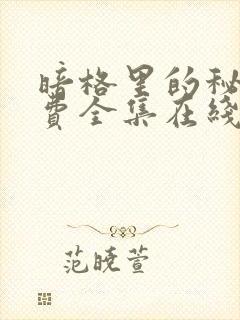 暗格里的秘
费全集在线
范晓萱